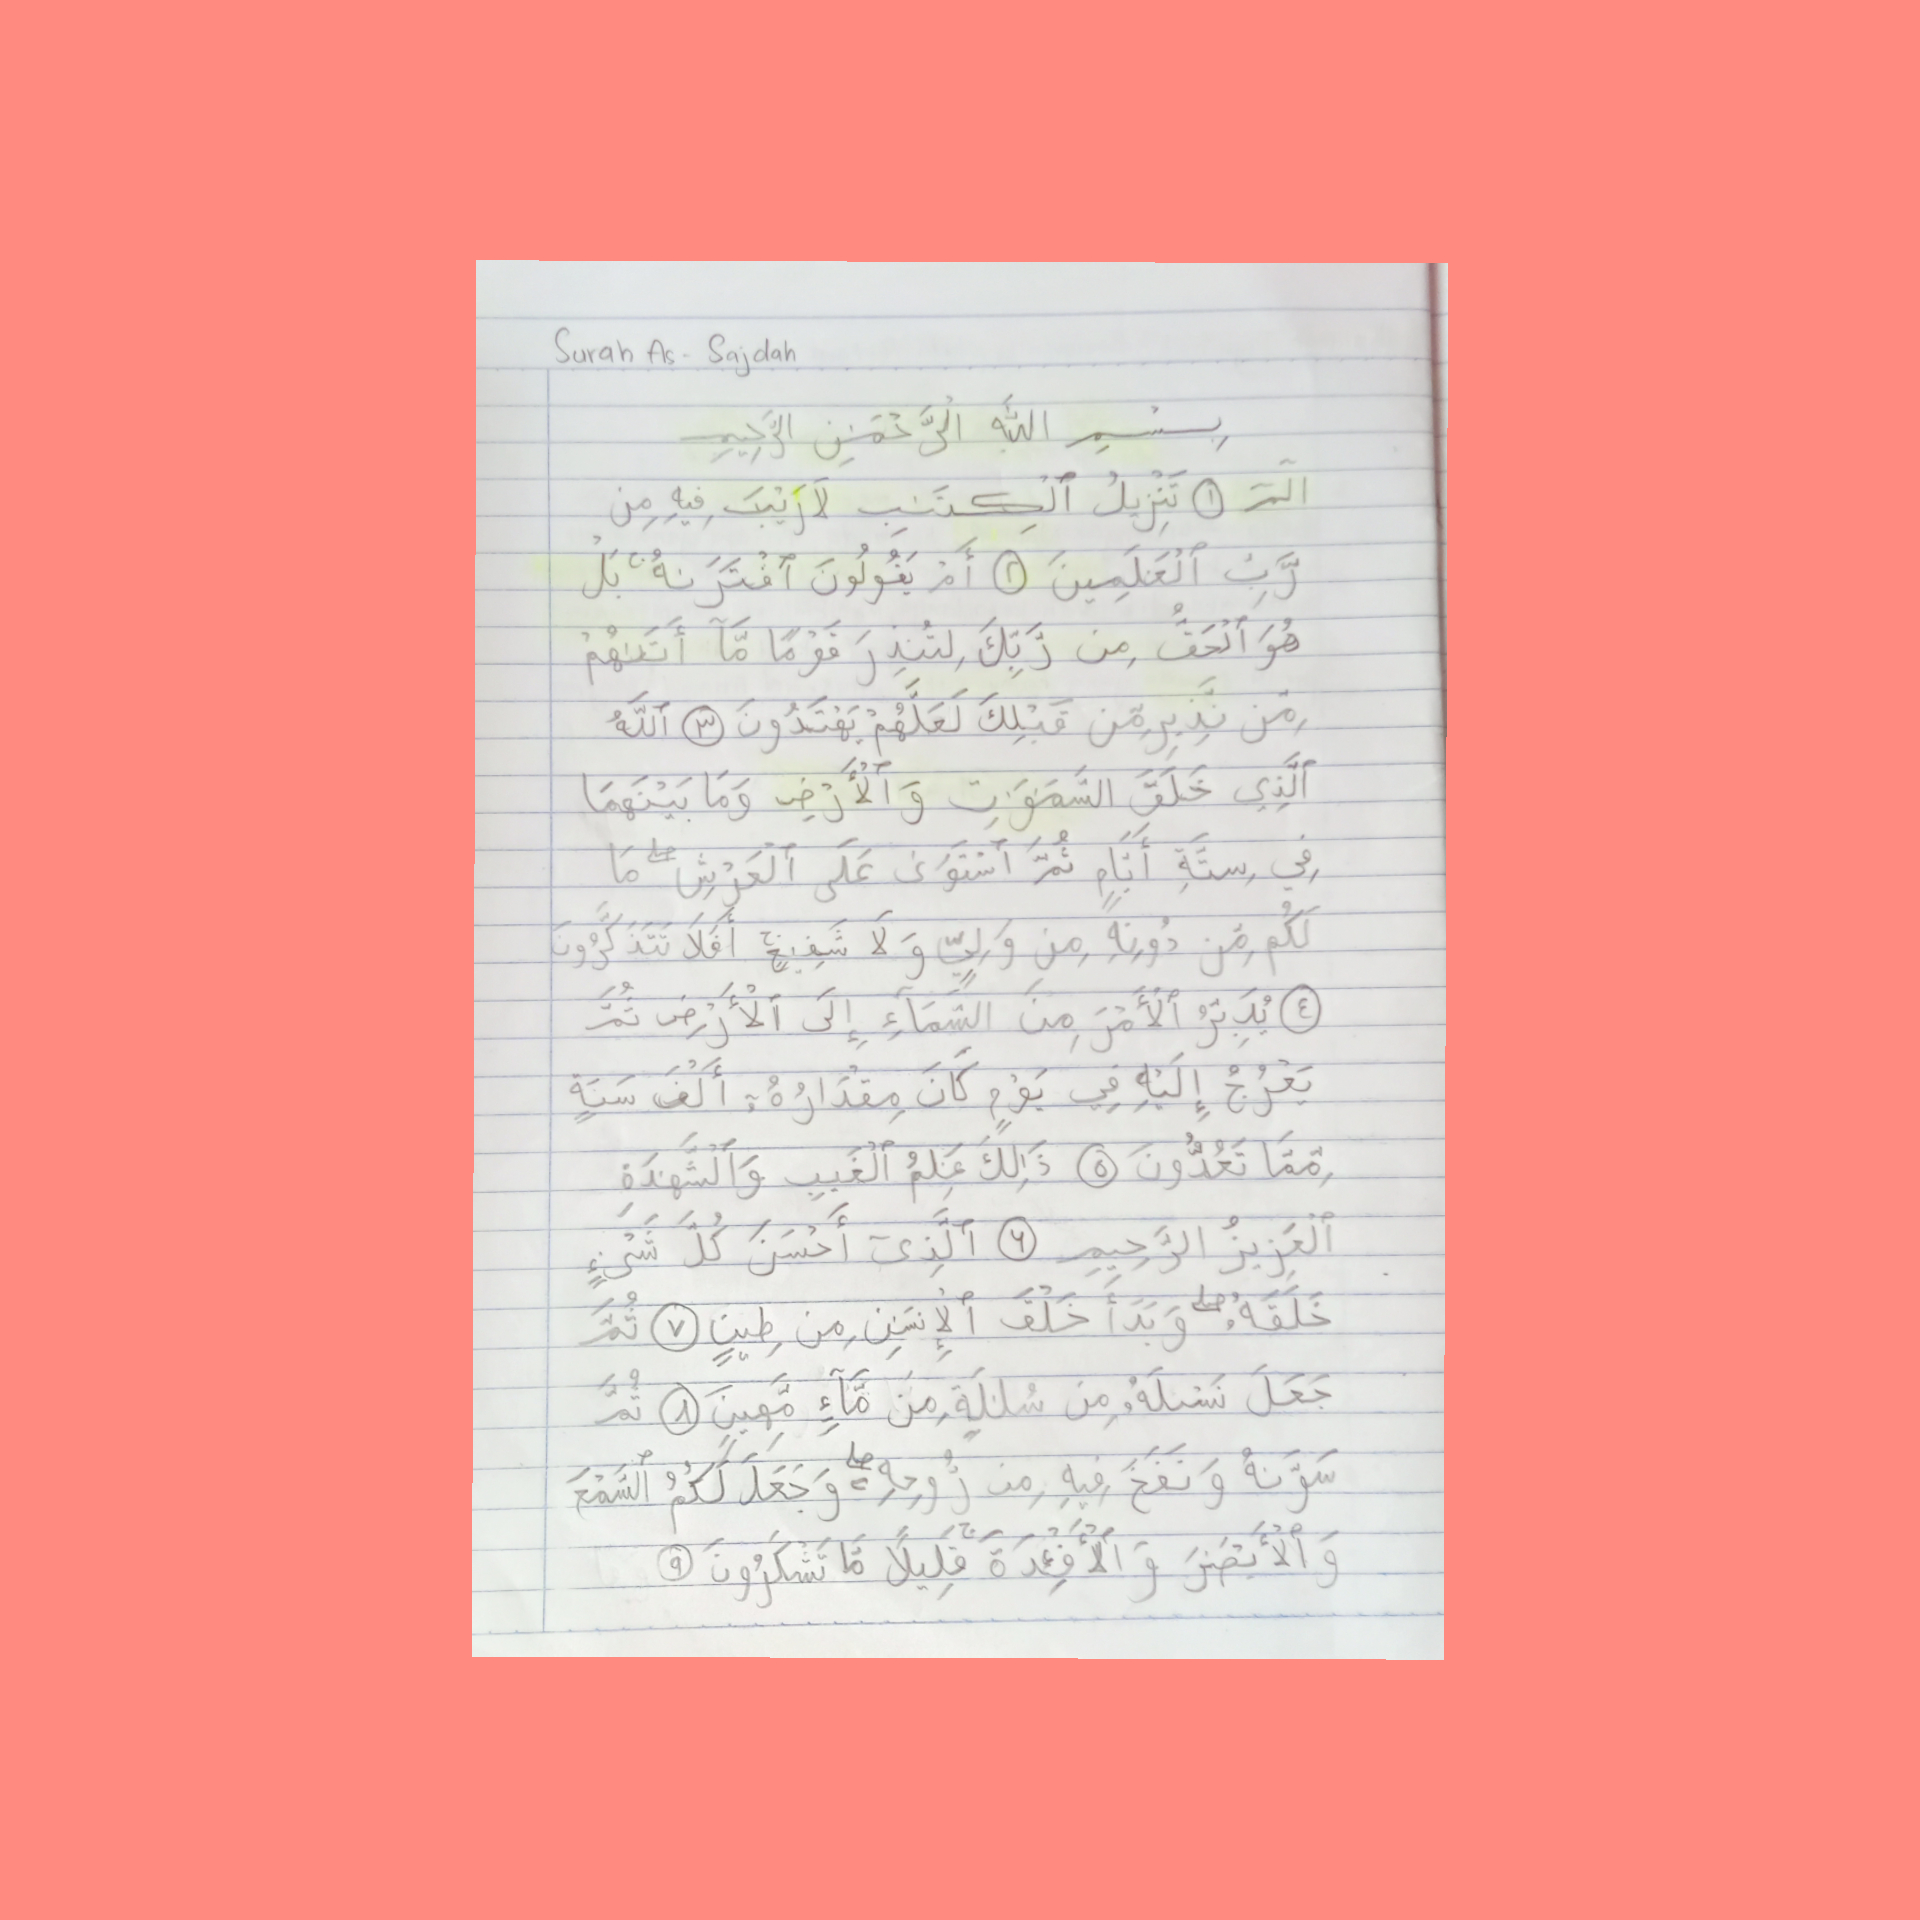 Surah As-Sajdah
بِسْمِ اللَّهِ الرَّحْمَٰنِ الرَّحِيمِ
الٓمٓ ١ تَنْزِيلُ ٱلْكِتَٰبِ لَا رَيْبَ فِيهِ مِن
رَّبِّ ٱلْعَٰلَمِينَ ٢ أَمْ يَقُولُونَ ٱفْتَرَىٰهُ ۚ بَلْ
هُوَ ٱلْحَقُّ مِن رَّبِّكَ لِتُنذِرَ قَوْمًا مَّآ أَتَىٰهُمْ
مِّن نَّذِيرٍ مِّن قَبْلِكَ لَعَلَّهُمْ يَهْتَدُونَ ٣ ٱللَّهُ
ٱلَّذِي خَلَقَ السَّمَٰوَٰتِ وَٱلْأَرْضِ وَمَا بَيْنَهُمَا
فِي سِتَّةِ أَيَّامٍ ثُمَّ ٱسْتَوَىٰ عَلَى ٱلْعَرْشِ ۖ مَا
لَكُم مِّن دُونِهِ مِن وَلِيٍّ وَلَا شَفِيعٍ ۚ أَفَلَا تَتَذَكَّرُونَ
٤ يُدَبِّرُ ٱلْأَمْرَ مِنَ السَّمَآءِ إِلَى ٱلْأَرْضِ ثُمَّ
يَعْرُجُ إِلَيْهِ فِي يَوْمٍ كَانَ مِقْدَارُهُۥٓ أَلْفَ سَنَةٍ
مِّمَّا تَعُدُّونَ ٥ ذَٰلِكَ عَٰلِمُ ٱلْغَيْبِ وَٱلشَّهَٰدَةِ
ٱلْعَزِيزُ الرَّحِيمِ ٦ ٱلَّذِىٓ أَحْسَنَ كُلَّ شَىْءٍ
خَلَقَهُۥ ۖ وَبَدَأَ خَلْقَ ٱلْإِنسَٰنِ مِن طِينٍ ٧ ثُمَّ
جَعَلَ نَسْلَهُۥ مِن سُلَٰلَةٍ مِّن مَّآءٍ مَّهِينٍ ٨ ثُمَّ
سَوَّىٰهُ وَنَفَخَ فِيهِ مِن رُّوحِهِۦ ۖ وَجَعَلَ لَكُمُ ٱلسَّمْعَ
وَٱلْأَبْصَٰرَ وَٱلْأَفْـِٔدَةَ ۚ قَلِيلًا مَّا تَشْكُرُونَ ٩